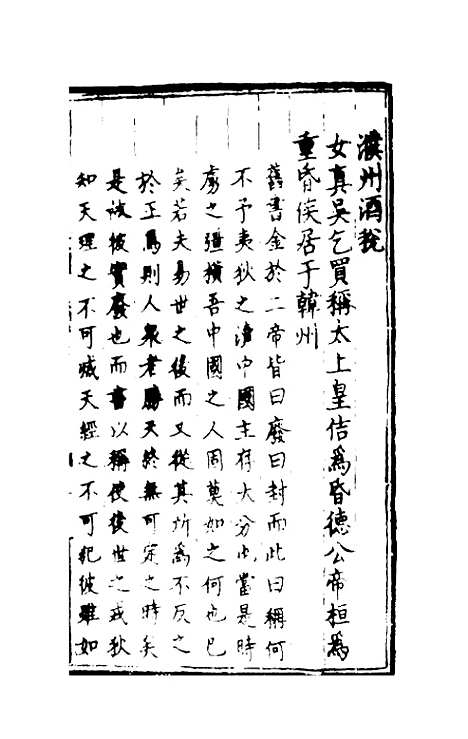 濮州酒稅
女真吳乞買稱太上皇佶為昏德公帝桓為
重昏侯居于韓州
舊書金於二帝皆曰廢曰封而此曰稱何
不予夷狄之滑中國主存大分也當是時
虜之彊橫吾中國之人固莫如之何也已
矣若夫易世之後而又從其所為不反之
於正焉則人衆者勝天終無可定之時矣
是故彼實廢也而書以稱使後世之戎狄
知天理之不可滅天經之不可紀彼雖如